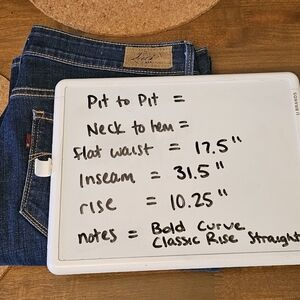 Pit to Pit =
Neck to hem =
flat waist = 17.5"
Inseam = 31.5"
rise = 10.25"
notes = Bold Curve
Classic Rise Straight